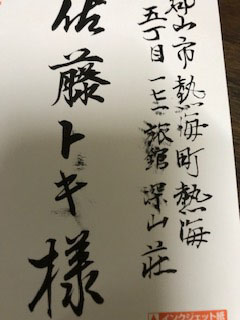 郡山市熱海町熱海
五丁目一七二 旅館 深山荘
佐藤トキ様
インクジェット紙